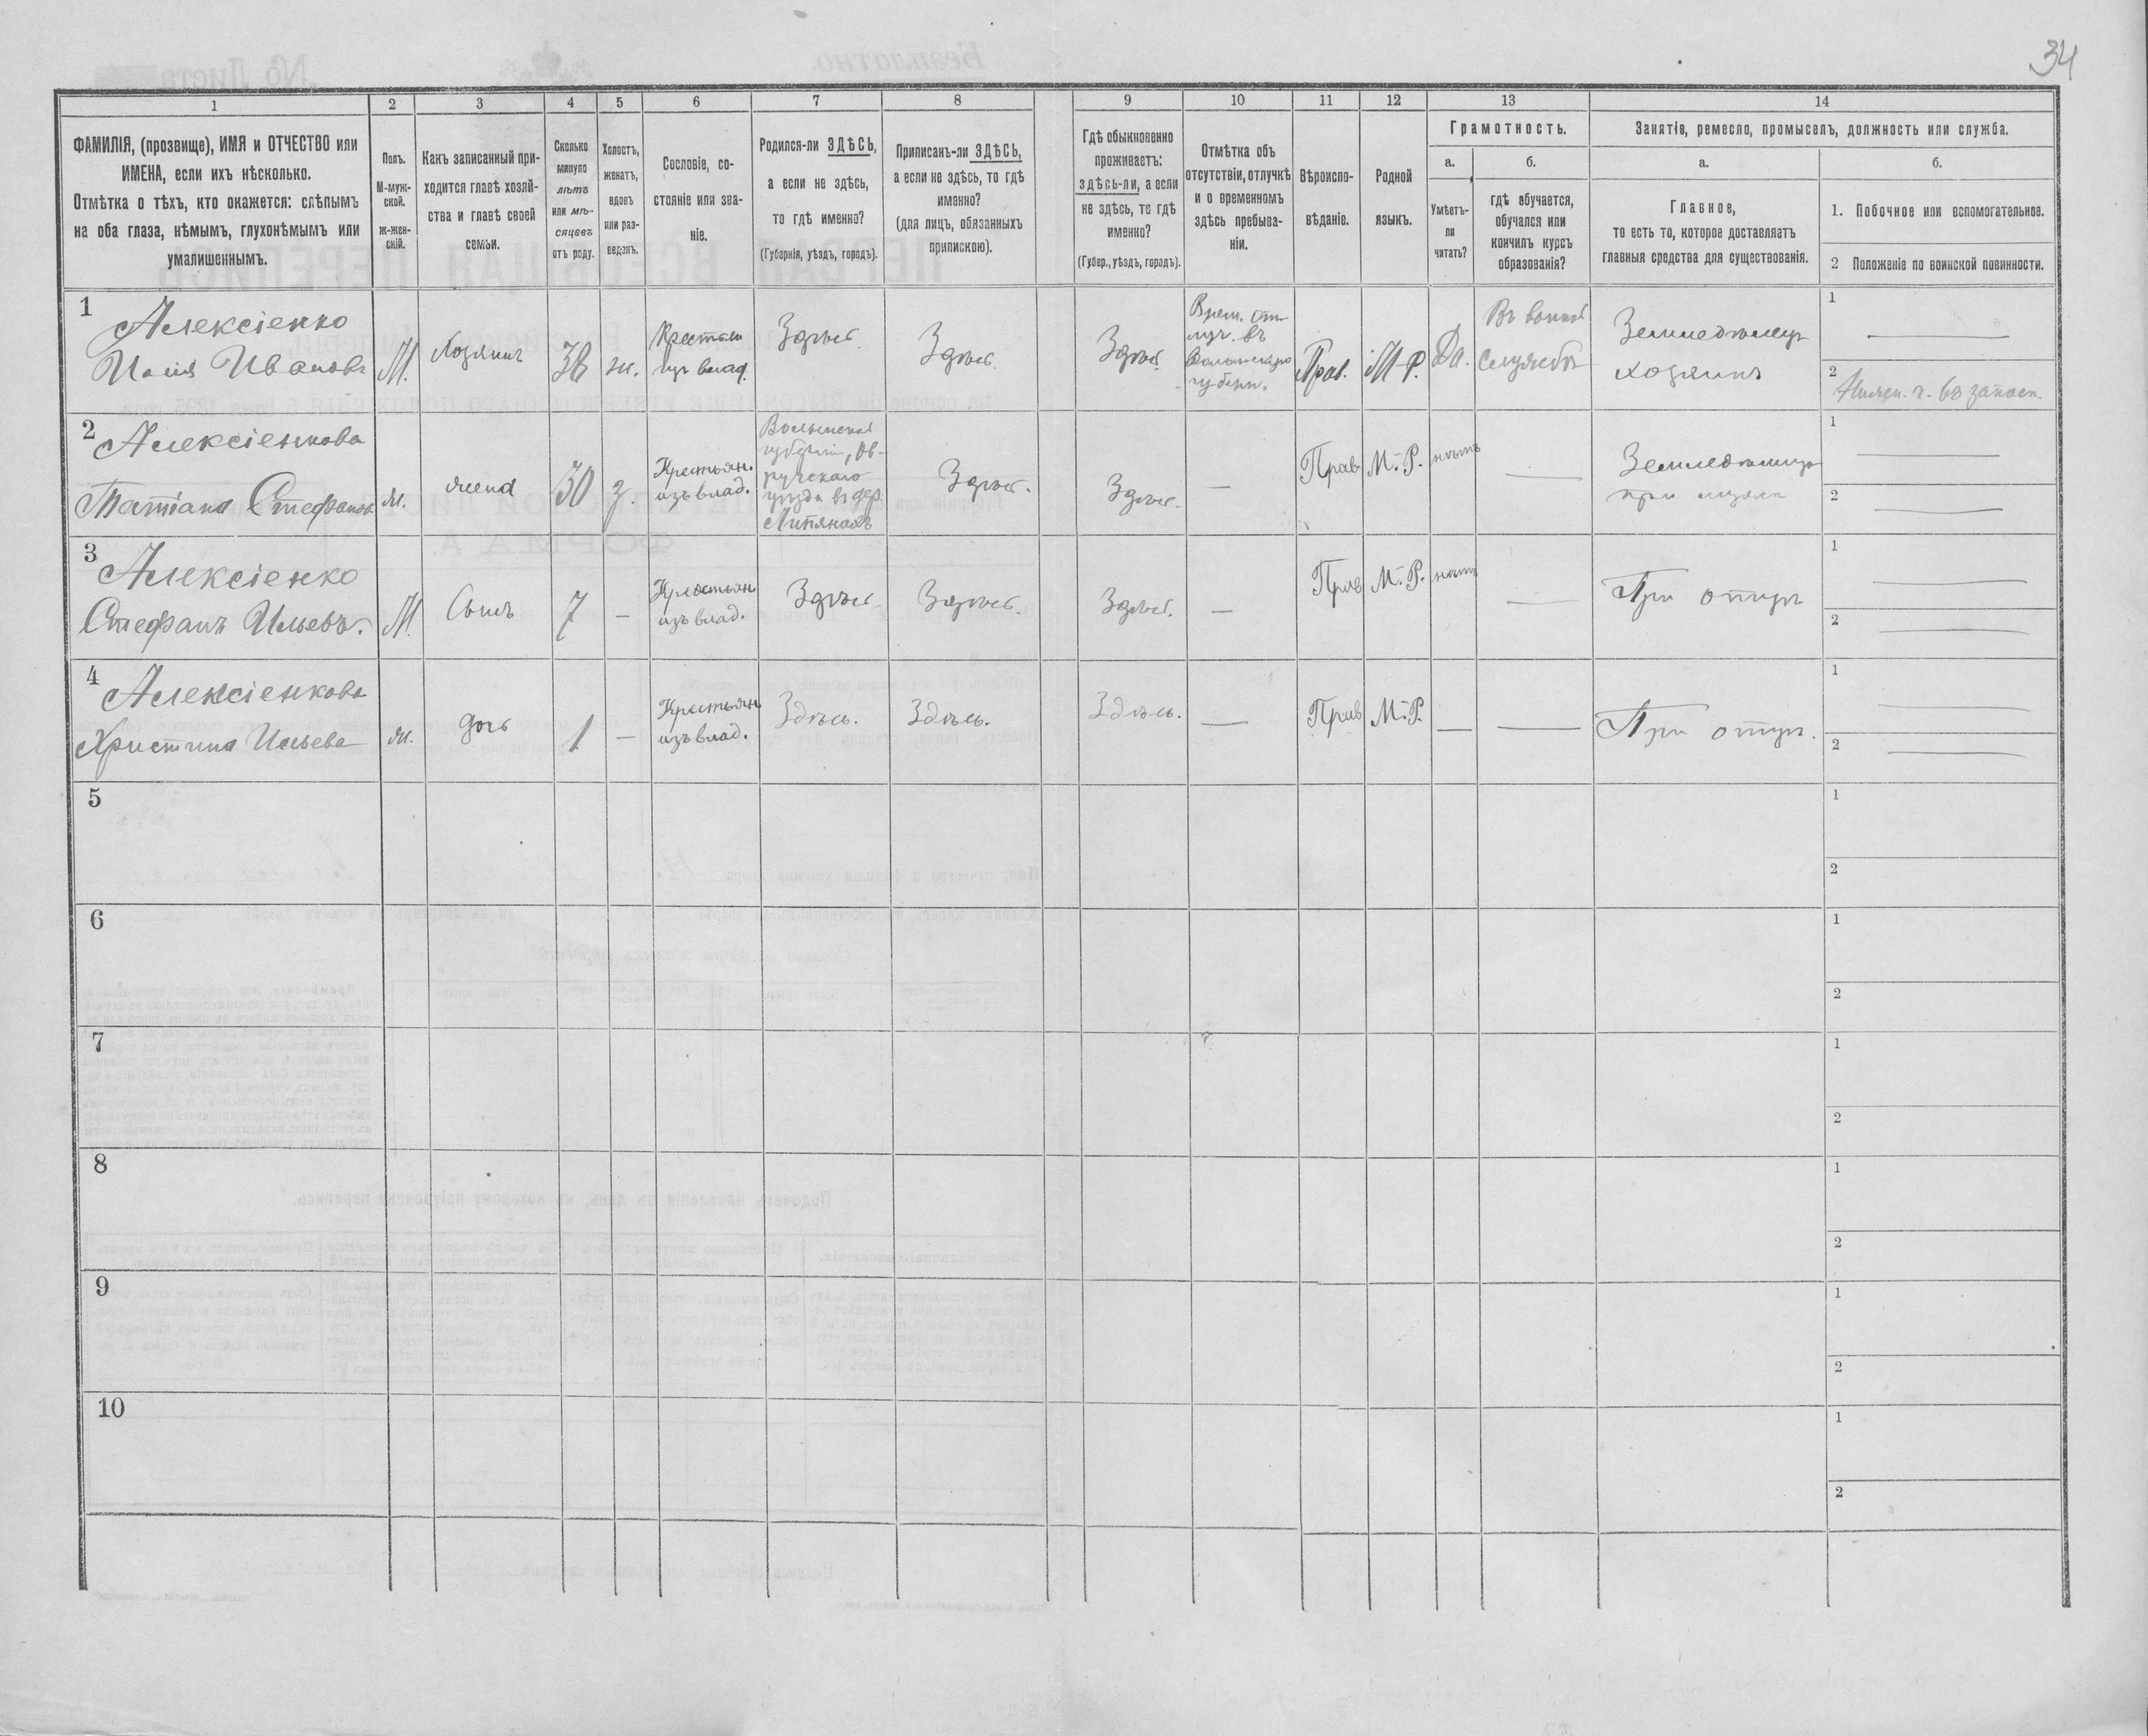 34
1
2
3
4
5
6
7
8
9
10
11
12
13
14
ФАМИЛІЯ, (прозвище), ИМЯ и ОТЧЕСТВО или
ИМЕНА, если ихъ нѣсколько.
Отмѣтка о тѣхъ, кто окажется: слѣпымъ
на оба глаза, нѣмымъ, глухонѣмымъ или
умалишеннымъ.
Полъ.
М-муж-
ской.
ж-жен-
скій.
Какъ записанный при-
ходится главѣ хозяй-
ства и главѣ своей
семьи.
Сколько
минуло
лѣтъ
или мѣ-
сяцевъ
отъ роду.
Холостъ,
женатъ,
вдовъ
или раз-
веденъ.
Сословіе, со-
стояніе или зва-
ніе.
Родился-ли ЗДѢСЬ,
а если не здѣсь,
то гдѣ именно?
(Губернія, уѣздъ, городъ).
Приписанъ-ли ЗДѢСЬ,
а если не здѣсь, то гдѣ
именно?
(для лицъ, обязанныхъ
припискою).
Гдѣ обыкновенно
проживаетъ:
здѣсь-ли, а если
не здѣсь, то гдѣ
именно?
(Губер., уѣздъ, городъ).
Отмѣтка объ
отсутствіи, отлучкѣ
и о временномъ
здѣсь пребыва-
ніи.
Вѣроиспо-
вѣданіе.
Родной
языкъ.
Грамотность.
а.
Умѣетъ-
ли
читать?
б.
гдѣ обучается,
обучался или
кончилъ курсъ
образованія?
Занятіе, ремесло, промыселъ, должность или служба.
а.
Главное,
то есть то, которое доставляетъ
главныя средства для существованія.
б.
1. Побочное или вспомогательное.
2 Положеніе по воинской повинности.
1
Алексіенко
Илія Ивановъ
М.
Хозяинъ
38
ж.
Крестьян
изъ влад.
Здѣсь.
Здѣсь.
Здѣсь.
Врем. от-
луч. въ
губерн.
Прав.
М-Р.
Да.
Въ воин
службѣ
Земледѣлецъ
хозяинъ
1
2
въ запасн.
2
Алексіенкова
Татіана Стефанов
ж.
жена
30
з.
Крестьян.
изъ влад.
Волынской
губерніи, Ов-
ручскаго
уѣзда въ дер.
Здѣсь.
Здѣсь.
—
Прав
М-Р.
нѣтъ
—
Земледѣлица
при мужѣ
1
2
3
Алексіенко
Стефанъ Ильевъ.
М.
Сынъ
7
—
Крестьян
изъ влад.
Здѣсь.
Здѣсь.
Здѣсь.
—
Прав
М-Р.
нѣтъ
—
При отцѣ
1
2
4
Алексіенкова
Христина Ильева
ж.
дочь
1
—
Крестьян
изъ влад.
Здѣсь.
Здѣсь.
Здѣсь.
—
Прав
М-Р.
—
—
При отцѣ.
1
2
5
1
2
6
1
2
7
1
2
8
1
2
9
1
2
10
1
2